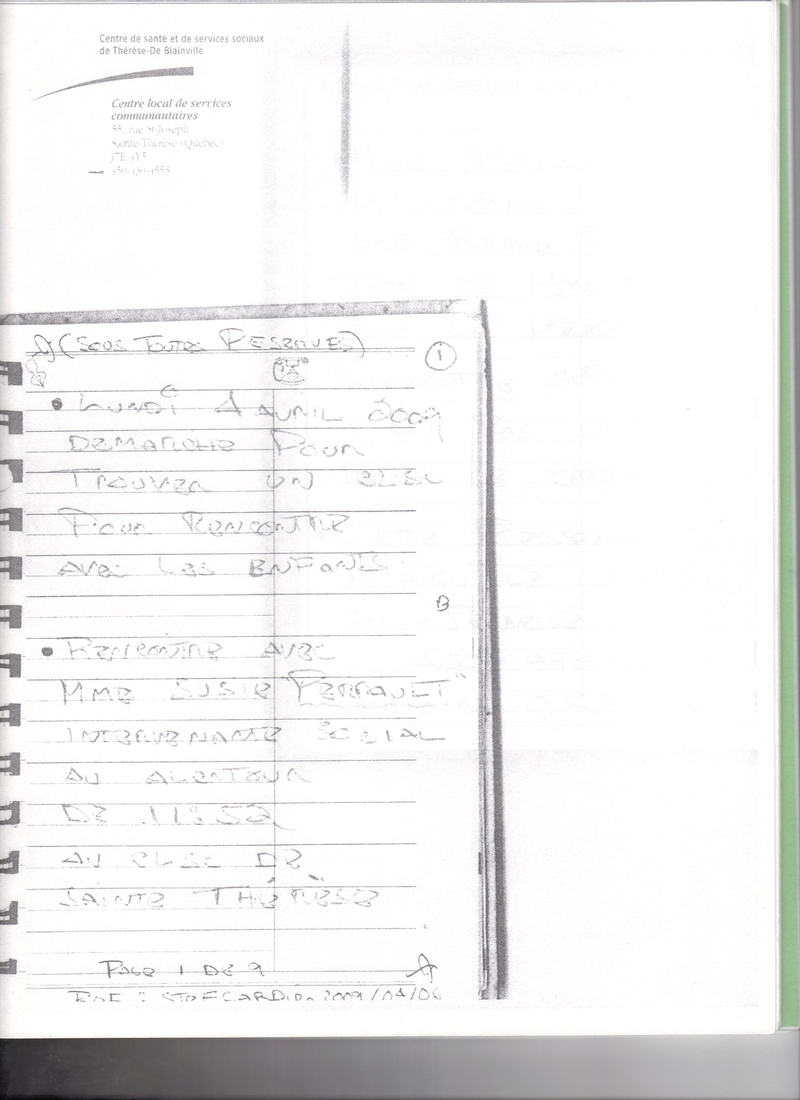 Centre de santé et de services sociaux
de Thérèse-De Blainville
Centre local de services
communautaires
55, rue St-Joseph
Sainte-Thérèse (Québec)
J7E 4Y5
450-430-4553
(SOUS TOUTES RESERVES)
1
• LUNDI 4 AVRIL 2009
DEMARCHE POUR
TROUVER UN CLSC
POUR RENCONTRE
AVEC LES ENFANTS
B
• RENCONTRE AVEC
MME SUSIE "PERRAULT"
INTERVENANTE SOCIAL
AU ALENTOUR
DE 11:52
AU CLSC DE
SAINTE THÉRÈSE
PAGE 1 DE 9
2009/04/06